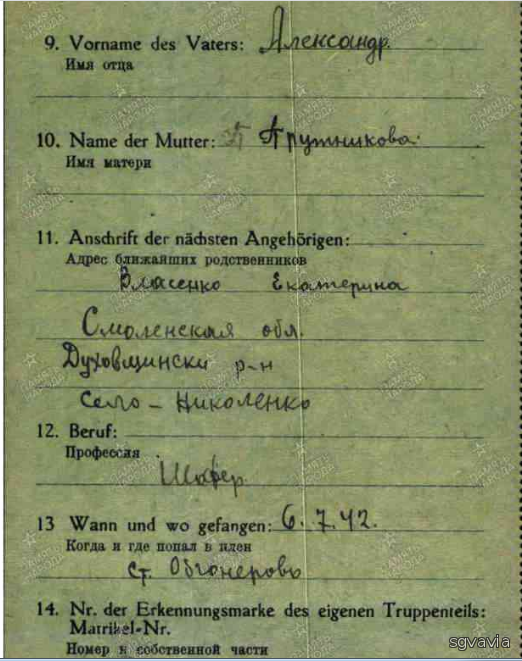 9. Vorname des Vaters: Александр.
Имя отца
10. Name der Mutter: Прутникова
Имя матери
11. Anschrift der nächsten Angehörigen:
Адрес ближайших родственников
Власенко Екатерина
Смоленская обл.
Духовщински р-н
Село - Николенко
12. Beruf:
Профессия
Шофер
13 Wann und wo gefangen: 6.7.42.
Когда и где попал в плен
ст. Обгонерово
14. Nr. der Erkennungsmarke des eigenen Truppenteils:
Matrikel-Nr.
Номер я собственной части
sgvavia